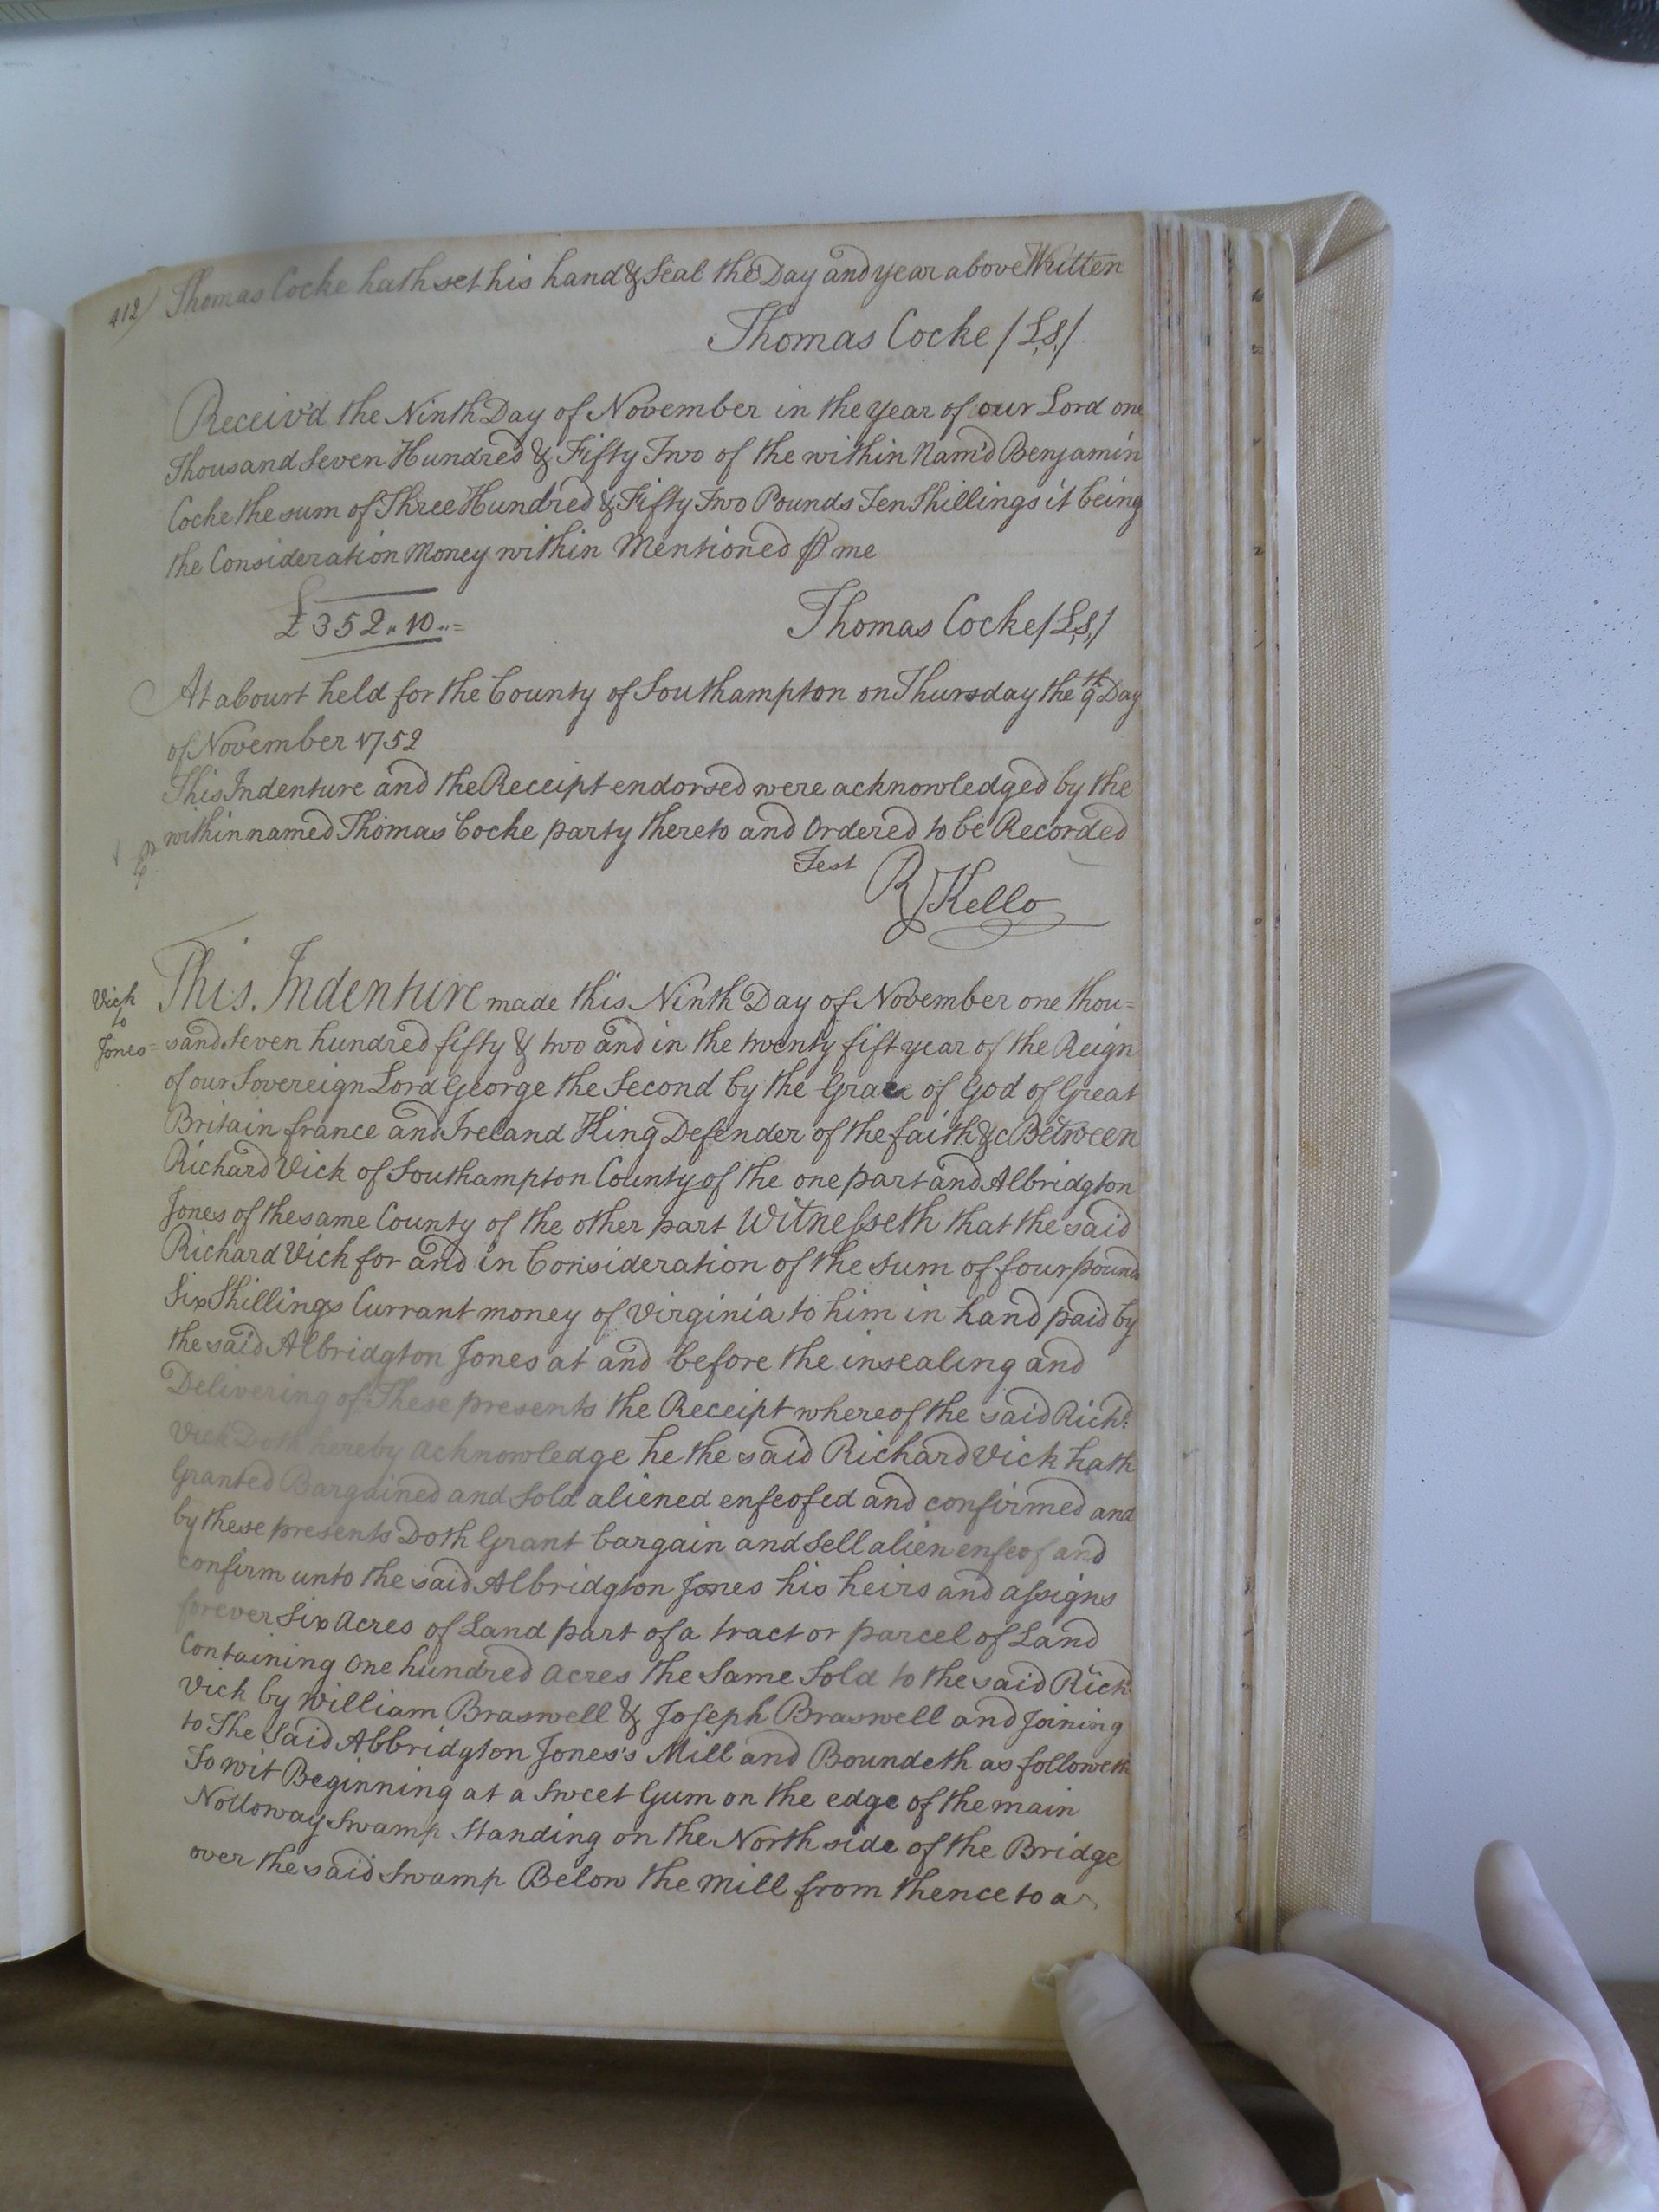 412/ Thomas Cocke hath set his hand & Seal the Day and year above Written
Thomas Cocke /L,S,/
Receiv'd the Ninth Day of November in the year of our Lord one
Thousand Seven Hundred & Fifty Two of the within Nam'd Benjamin
Cocke the sum of Three Hundred & Fifty Two Pounds Ten Shillings it being
the Consideration Money within Mentioned ⅌ me
£352"10"=
Thomas Cocke /L,S,/
At a Court held for the County of Southampton on Thursday the 9th Day
of November 1752
This Indenture and the Receipt endorsed were acknowledged by the
within named Thomas Cocke party thereto and Ordered to be Recorded
Test R Kello
Vick
to
Jones
This Indenture made this Ninth Day of November one thou=
sand Seven hundred fifty & two and in the twenty fift year of the Reign
of our Sovereign Lord George the Second by the Grace of God of Great
Britain france and Ireland King Defender of the faith &c Between
Richard Vick of Southampton County of the one part and Albridgton
Jones of the same County of the other part Witnesseth that the said
Richard Vick for and in Consideration of the sum of four pound
Six Shillings Currant money of Virginia to him in hand paid by
the said Albridgton Jones at and before the insealing and
Delivering of These presents the Receipt whereof the said Richd.
Vick Doth hereby acknowledge he the said Richard Vick hath
Granted Bargained and Sold aliened enfeofed and confirmed and
by these presents Doth Grant bargain and Sell alien enfeof and
confirm unto the said Albridgton Jones his heirs and assigns
forever Six Acres of Land part of a tract or parcel of Land
Containing One hundred acres the Same Sold to the said Rich
Vick by William Braswell & Joseph Braswell and Joining
to The Said Abbridgton Jones's Mill and Boundeth as followeth
To wit Beginning at a Sweet Gum on the edge of the main
Nottoway Swamp Standing on the North side of the Bridge
over the said Swamp Below the Mill from thence to a